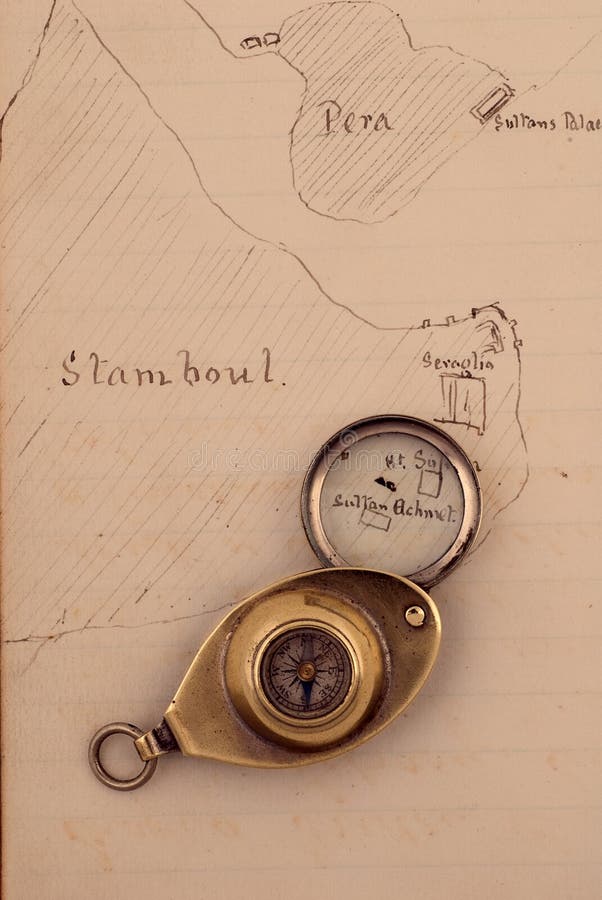 Pera
Sultans Palac
Stamboul.
Seraglio
St. So
Sultan Achmet.
dreamstime